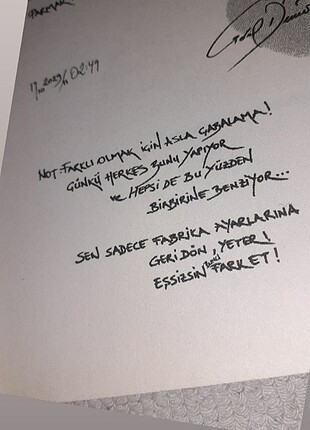 PARMAK
02:49
NOT: FARKLI OLMAK İÇİN ASLA ÇABALAMA!
ÇÜNKÜ HERKES BUNU YAPIYOR
VE HEPSİ DE BU YÜZDEN
BİRBİRİNE BENZİYOR...
SEN SADECE FABRİKA AYARLARINA
GERİ DÖN, YETER!
EŞSİZSİN FARKET!